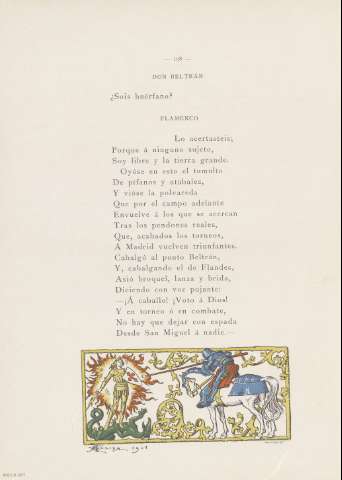 — 198 —
DON BELTRÁN
¿Sois huérfano?
FLAMENCO
Lo acertasteis;
Porque á ninguno sujeto,
Soy libre y la tierra grande.
Oyóse en esto el tumulto
De pífanos y atabales,
Y vióse la polvareda
Que por el campo adelante
Envuelve á los que se acercan
Tras los pendones reales,
Que, acabados los torneos,
Á Madrid vuelven triunfantes.
Cabalgó al punto Beltrán,
Y, cabalgando el de Flandes,
Asió broquel, lanza y brida,
Diciendo con voz pujante:
—¡Á caballo! ¡Voto á Dios!
Y en torneo ó en combate,
No hay que dejar con espada
Desde San Miguel á nadie.—